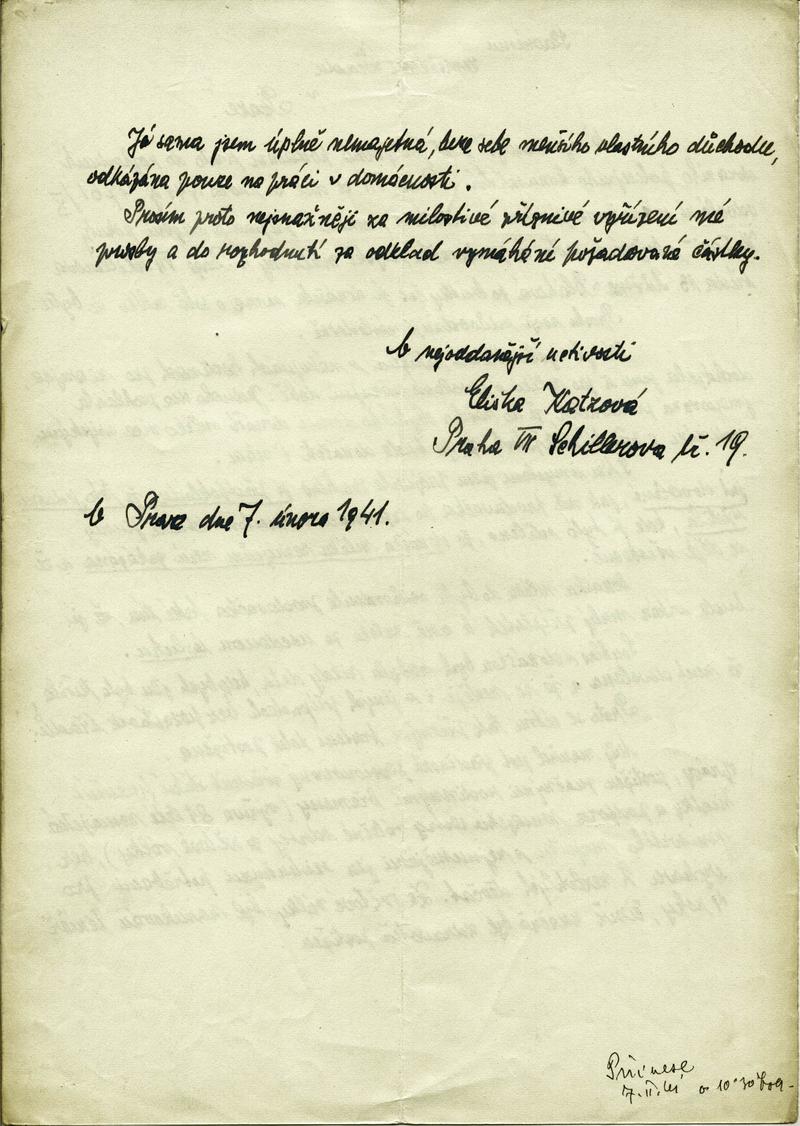 Já sama jsem úplně nemajetná, beze sebe menšího vlastního důchodu,
odkázána pouze na práci v domácnosti.
Prosím proto nejsnažněji za milostivé příznivé vyřízení mé
prosby a do rozhodnutí za odklad vymáhání požadované částky.
V nejoddanější uctivosti
Eliška Katzová
Praha VII Schillerova č. 19.
V Praze dne 7. února 1941.
7. II. 41 o 10